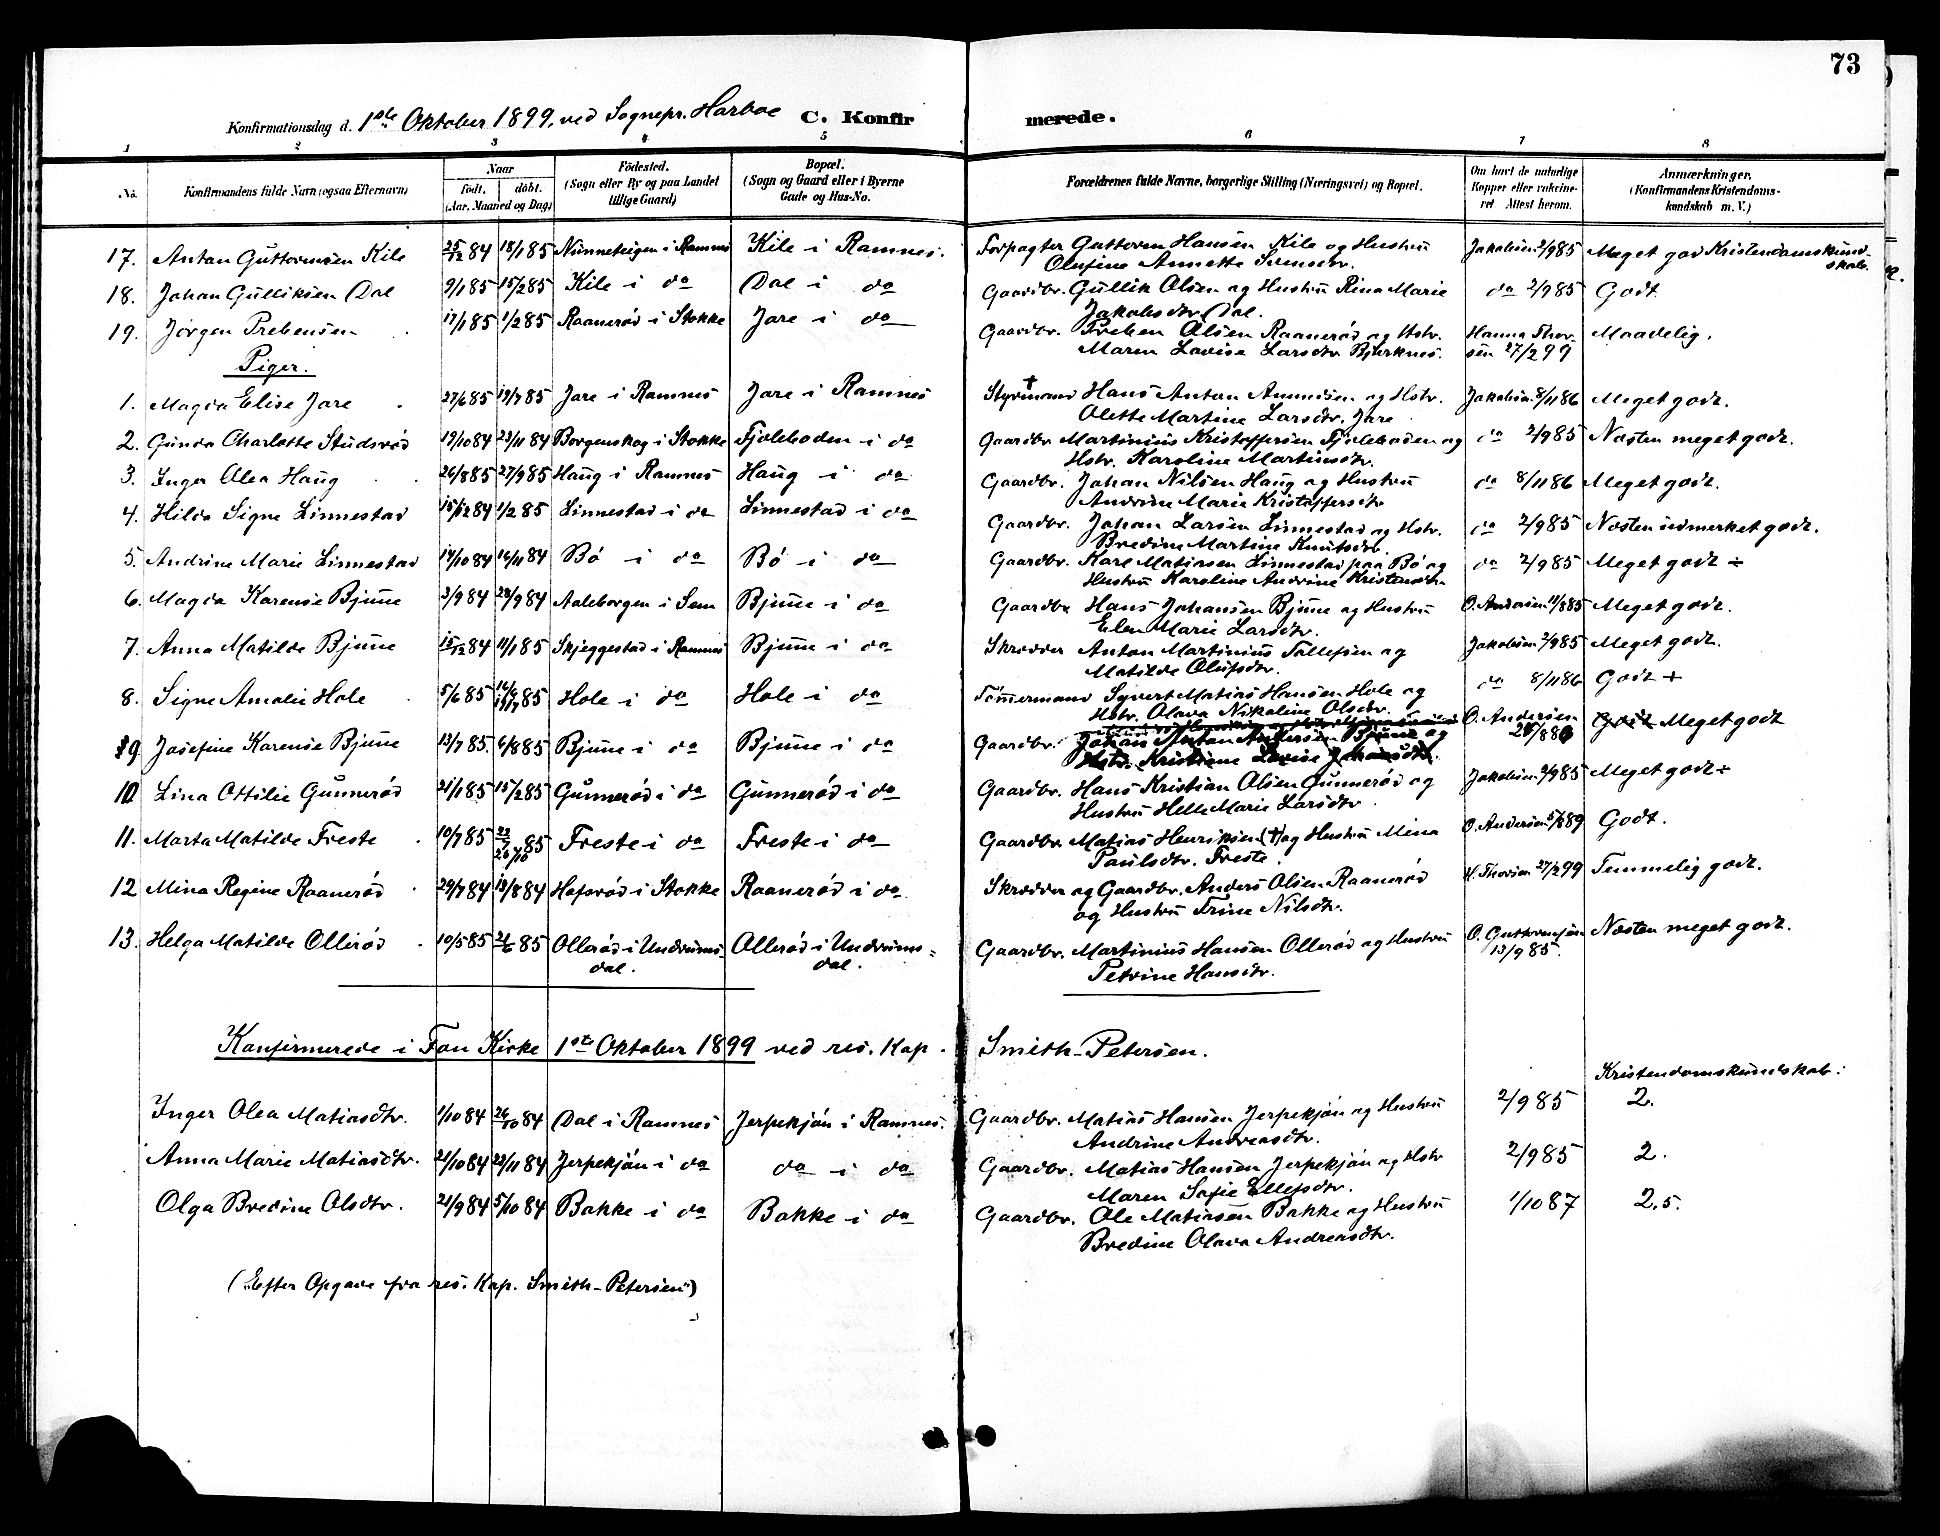 73
Konfirmationsdag d. 1ste Oktober 1899, ved Sognepr. Harboe C. Konfirmerede.
1 2 3 4 5 6 7 8
No. Konfirmandens fulde Navn (ogsaa Efternavn) Naar født. døbt. (Aar, Maaned og Dag) Fødested. (Sogn eller By og paa Landet tillige Gaard) Bopæl. (Sogn og Gaard eller i Byerne Gade og Hus-No. Forældrenes fulde Navne, borgerlige Stilling (Næringsvei) og Bopæl. Om havt de naturlige Kopper eller vakcineret Attest herom. Anmærkninger. (Konfirmandens Kristendomskundskab m. V.)
17. Anton Guttormsen Kile 25/12 84 18/1 85 Nünneteigen i Ramnes Kile i Ramnes. Forpagter Guttorm Hansen Kile og Hustrü Jakobsen 2/9 85 Meget god Kristendomskund-
Olufine Annette Svensdtr. skab.
18. Johan Gülliksen Dal 9/1 85 15/2 85 Kile i do Dal i do Gaardbr. Gullik Olsen og Hustrü Rina Marie do 2/9 85 Godt
Jakobsdtr Dal.
19. Jørgen Prebensen 17/1 85 1/2 85 Raanerød i Stokke Jare i do Gaardbr. Preben Olsen Raanerød og Hstr. Hanna Thor- Maadelig.
Maren Lovise Larsdtr Bjerknes. sen 27/2 99
Piger.
1. Magda Elise Jare 27/6 85 19/7 85 Jare i Ramnes Jare i Ramnes Styrmand † Hans Anton Amundsen og Hstr. Jakobsen 8/11 86 Meget godt.
Olette Martine Larsdtr. Jare
2. Gunda Charlotte Studsrød 19/10 84 23/11 84 Borgenskog i Stokke Fjeleboden i do Gaardbr Martinius Kristoffersen Fjeleboden og do 2/9 85 Næsten meget godt.
Hstr. Karoline Martinsdtr.
3. Inger Olea Haug 26/8 85 27/9 85 Haug i Ramnes Haug i do Gaardbr. Johan Nilsen Haug og Hustrü do 8/11 86 Meget godt.
Andrine Marie Kristoffersdtr
4. Hilda Signe Linnestad 15/12 84 1/2 85 Linnestad i do Linnestad i do Gaardbr. Johan Larsen Linnestad og Hstr. do 2/9 85 Næsten üdmerket godt.
Bredine Martine Knütsdtr.
5. Andrine Marie Linnestad 14/10 84 16/11 84 Bø i do Bø i do Gaardbr. Karl Matiasen Linnestad paa Bø og do 2/9 85 Meget godt ÷
Hustrü Karoline Andrine Kristensdtr.
6. Magda Karense Bjüne 3/9 84 28/9 84 Aaleborgen i Sem Bjüne i do Gaardbr Hans Johansen Bjüne og Hustrü O. Andersen 11/8 85 Meget godt.
Elen Marie Larsdtr.
7. Anna Matilde Bjüne 15/12 84 11/1 85 Skjeggestad i Ramnes Bjüne i do Skrædder Anton Martinius Tollefsen og Jakobsen 2/9 85 Meget godt.
Matilde Olufsdtr.
8. Signe Amalie Hole 5/6 85 19/7 85 Hole i do Hole i do Tømmermand Syvert Matias Hansen Hole og do 8/11 86 Godt +
Hstr. Olava Nikoline Olsdtr.
9 Josefine Karense Bjüne 13/7 85. 6/8 85 Bjüne i do Bjüne i do Gaardbr. Johan Anton Andersen Bjüne og O. Andersen Godt Meget godt
Hstr. Kristiane Lovise Johansdtr. 25/8 86
10 Lina Ottilie Gunnerød 21/1 85 15/2 85 Gunnerød i do Gunnerød i do Gaardbr. Hans Kristian Olsen Gunnerød og Jakobsen 2/9 85 Meget godt ÷
Hustrü Helle Marie Larsdtr.
11. Marta Matilde Freste 10/7 85 26/10 85 Freste i do Freste i do Gaardbr. Matias Henriksen (†) og Hustrü Mina O. Andersen 5/6 89 Godt.
Paulsdtr. Freste.
12 Mina Regine Raanerød 29/7 84 13/8 84 Hafsrød i Stokke Raanerød i do Skrædder og Gaardbr. Anders Olsen Raanerød H. Thorsen 27/2 99 Temmelig godt.
og Hustrü Trine Nilsdtr.
13. Helga Matilde Ollerød 10/5 85 21/6 85 Ollerød i Undrums- Ollerød i Undrums= Gaardbr. Martinius Hansen Ollerød og Hustrü O. Guttormsen Næsten meget godt.
dal. dal. Petrine Hansdtr. 13/9 85.
Konfirmerede i Fon Kirke 1ste Oktober 1899 ved res. Kap. Smith-Petersen.
Kristendomskundskab:
Inger Olea Matiasdtr. 1/10 84 26/10 84 Dal i Ramnes Jerpekjøn i Ramnes. Gaardbr. Matias Hansen Jerpekjøn og Hustrü 2/9 85 2.
Andrine Andreasdtr.
Anna Marie Matiasdtr. 21/10 84 23/11 84 Jerpekjøn i do do i do Gaardbr. Matias Hansen Jerpekjøn og Hstr 2/9 85 2.
Maren Sofie Ellefsdtr.
Olga Bredine Olsdtr. 21/9 84 5/10 84 Bakke i do Bakke i do Gaardbr. Ole Matiasen Bakke og Hustrü 1/10 87 2.5.
Bredine Olava Andreasdtr.
(Efter Opgave fra res. Kap. Smith-Petersen)